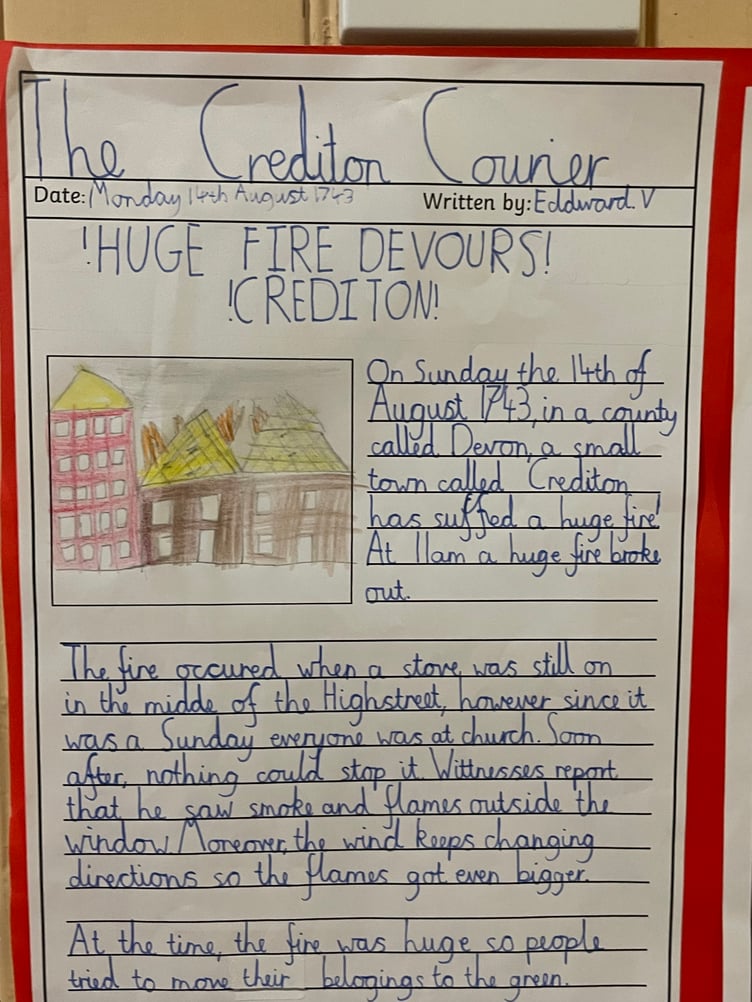 The Crediton Courier
Date: Monday 14th August 1743 Written by: Eddward. V
!HUGE FIRE DEVOURS!
!CREDITON!
On Sunday the 14th of
August 1743, in a county
called Devon, a small
town called Crediton
has suffred a huge fire!
At 11am a huge fire broke
out.
The fire occured when a stove was still on
in the midde of the Highstreet, however since it
was a Sunday everyone was at church. Soon
after, nothing could stop it. Wittnesses report
that he saw smoke and flames outside the
window. Moreover, the wind keeps changing
directions so the flames got even bigger.
At the time, the fire was huge so people
tried to move their belogings to the green.